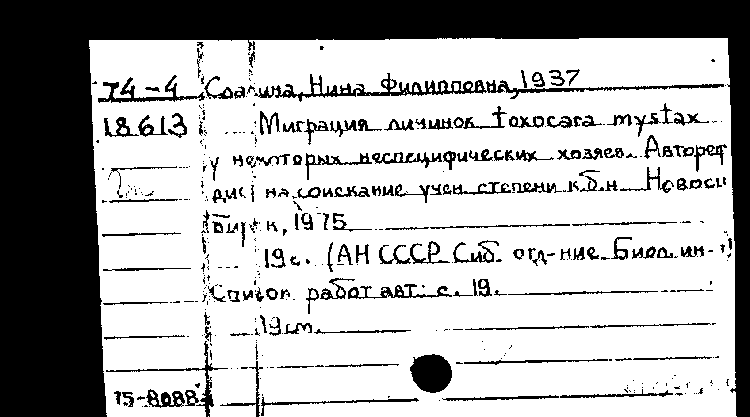 74-4 Слагина, Нина Филипповна, 1937
18613 Миграция личинок toxocara mystax
у некоторых неспецифических хозяев. Автореф
дис на соискание учен. степени к.б.н. Новоси
бирск, 1975
19с. (АН СССР Сиб. отд-ние. Биол. ин-т)
Список работ авт: с. 19.
19 см.
75-8088